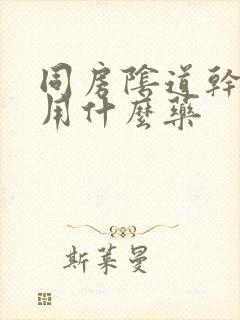 同房陰道幹
用什麼藥
斯萊曼